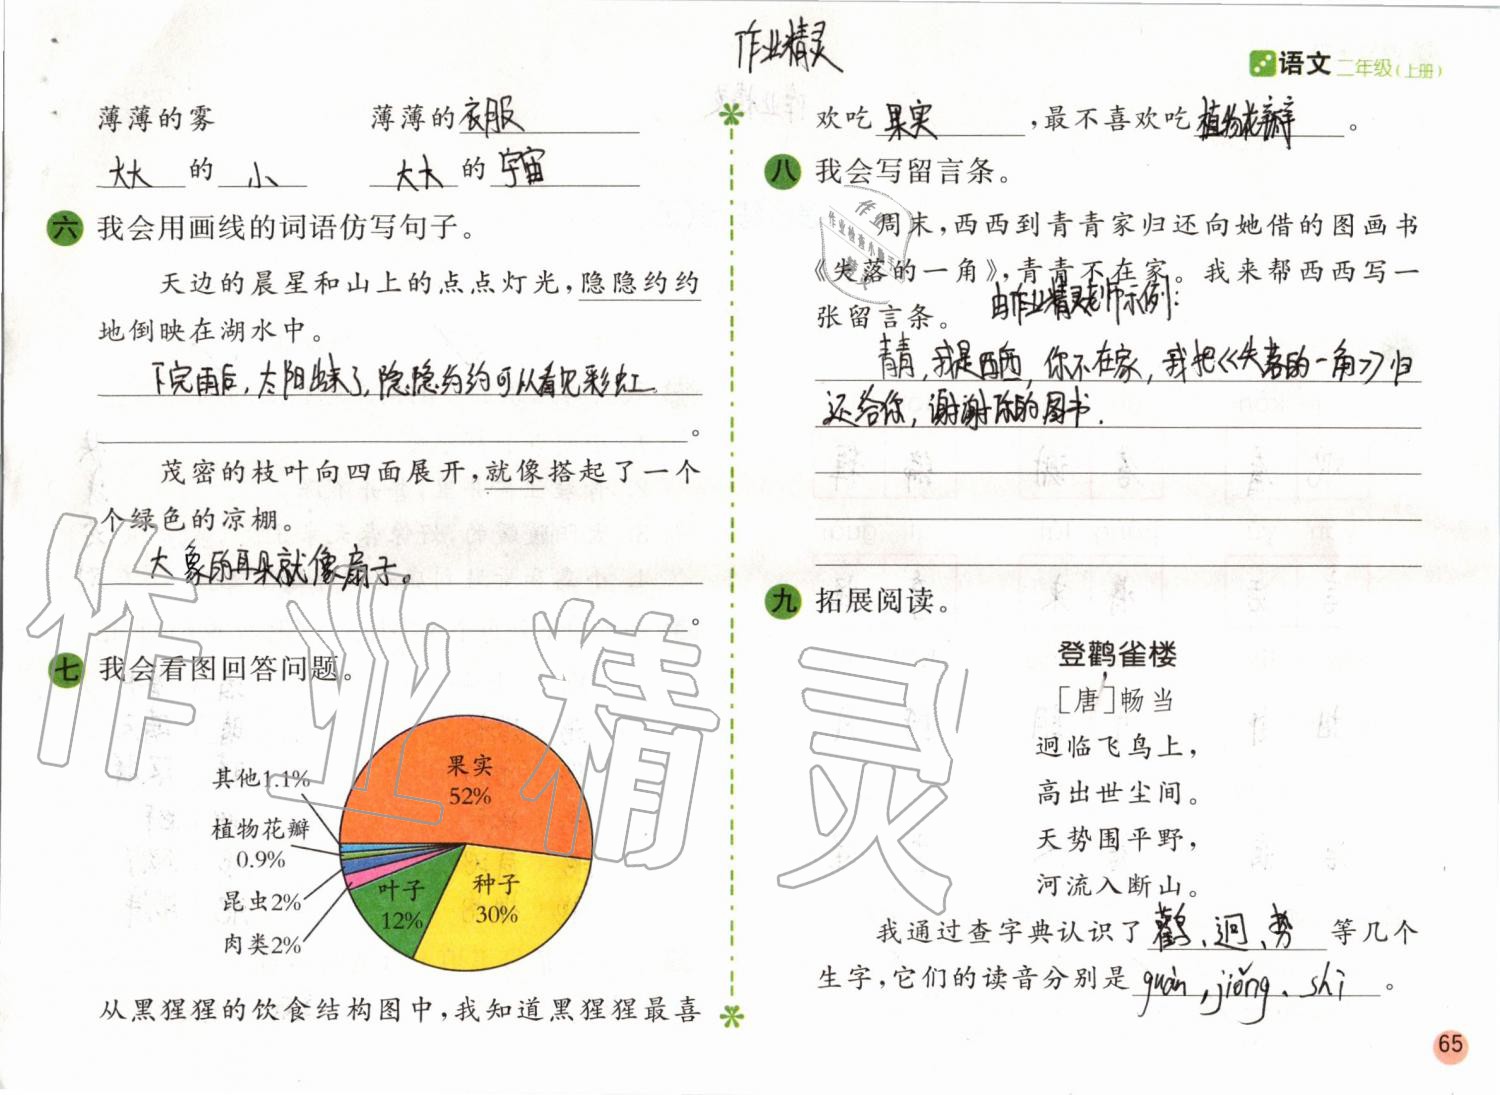 作业精灵
语文 二年级(上册)
薄薄的雾 薄薄的衣服
大大的小 大大的宇宙
六 我会用画线的词语仿写句子。
天边的晨星和山上的点点灯光,隐隐约约
地倒映在湖水中。
下完雨后,太阳出来了,隐隐约约可以看见彩虹.
。
茂密的枝叶向四面展开,就像搭起了一个
个绿色的凉棚。
大象的耳朵就像扇子。
。
七 我会看图回答问题。
果实
52%
其他1.1%
植物花瓣
0.9%
昆虫2%
肉类2%
叶子
12%
种子
30%
从黑猩猩的饮食结构图中,我知道黑猩猩最喜
欢吃果实,最不喜欢吃植物花瓣。
八 我会写留言条。
周末,西西到青青家归还向她借的图画书
《失落的一角》,青青不在家。我来帮西西写一
张留言条。 由作业精灵老师示例:
青青,我是西西,你不在家,我把《失落的一角》归
还给你,谢谢你的图书.
九 拓展阅读。
登鹳雀楼
[唐]畅当
迥临飞鸟上,
高出世尘间。
天势围平野,
河流入断山。
我通过查字典认识了鹳、迥、势等几个
生字,它们的读音分别是guàn,jiǒng、shì。
65
作业精灵